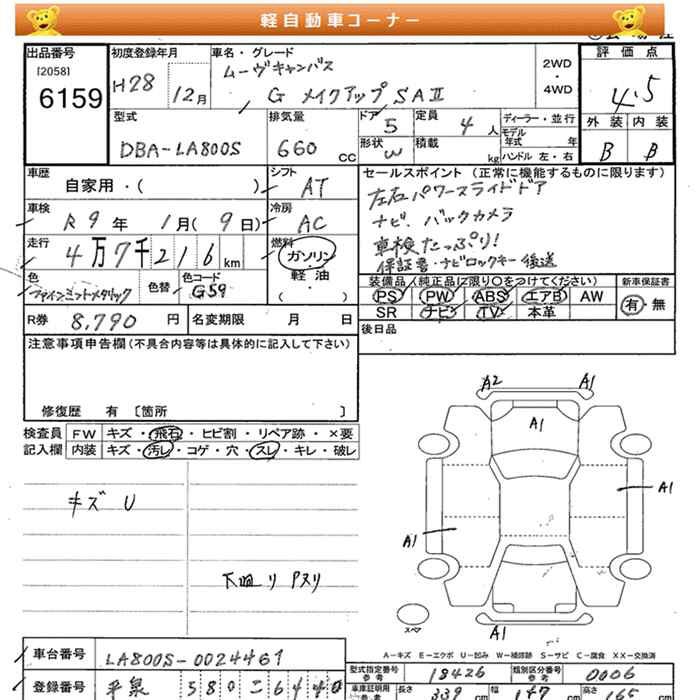 軽自動車コーナー
出品番号
[2058]
6159
初度登録年月
H28
12月
車名・グレード
ムーヴキャンバス
G メイクアップSAⅡ
2WD
・
4WD
評価点
4.5
外装 内装
B B
型式
DBA-LA800S
排気量
660 CC
ドア
5
形状
W
定員
4 人
積載
kg
ディーラー・並行
モデル
年式 年
ハンドル 左・右
車歴
自家用・( )
シフト
AT
車検
R9年 1月(9日)
冷房
AC
走行
4万7千216km
燃料
ガソリン
・
軽油
( )
色
ファインミントメタリック
色替
色コード
G59
R券 8,790 円
名変期限 月 日
セールスポイント(正常に機能するものに限ります)
左右パワースライドドア
ナビ、バックカメラ
車検たっぷり!
保証書・ナビロックキー後送
装備品(純正品に限り○をつけてください)
PS PW ABS エアB AW
SR ナビ TV 本革
新車保証書
有・無
後日品
注意事項申告欄(不具合内容等は具体的に記入して下さい)
修復歴 有 〔箇所 〕
検査員
記入欄
FW キズ・飛石・ヒビ割・リペア跡・×要
内装 キズ・汚レ・コゲ・穴・スレ・キレ・破レ
キズ U
下廻り Pヌリ
A2 A1
A1
A1
A1
A1
スペア
A-キズ E-エクボ U-凹み W-補修跡 S-サビ C-腐食 XX-交換済
車台番号 LA800S-0024461
登録番号 平泉 580こ6440
型式指定番号
参考
18426
類別区分番号
参考
0006
車庫証明用
参考
長さ 339 cm
幅 147 cm
高さ 165 cm